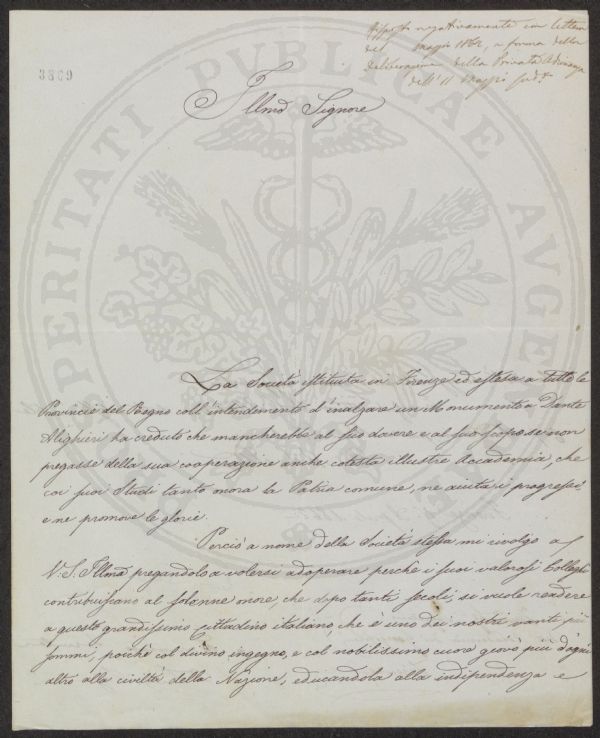 3869
Risposto negativamente con lettera
del maggio 1862, a forma della
deliberazione della Privata Adunanza
dell' 11 Maggio sud.º
Illmo Signore
La Società istituita in Firenze ed estesa a tutte le
Provincie del Regno coll' intendimento d'inalzare un Monumento a Dante
Alighieri ha creduto che mancherebbe al suo dovere e al suo scopo se non
pregasse della sua cooperazione anche cotesta illustre Accademia, che
coi suoi Studi tanto onora la Patria comune, ne aiuta i progressi,
e ne promove le glorie.
Perciò a nome della Società stessa mi rivolgo a
V. S. Illma pregandola a volersi adoperare perchè i suoi valorosi Colleghi
contribuiscano al solenne onore, che dopo tanti secoli, si vuole rendere
a questo grandissimo cittadino italiano, che è uno dei nostri vanti più
sommi, poichè col divino ingegno, e col nobilissimo cuore giovò più d'ogni
altro alla civiltà della Nazione, educandola alla indipendenza e
PROSPERITATI PUBLICAE AUGENDAE